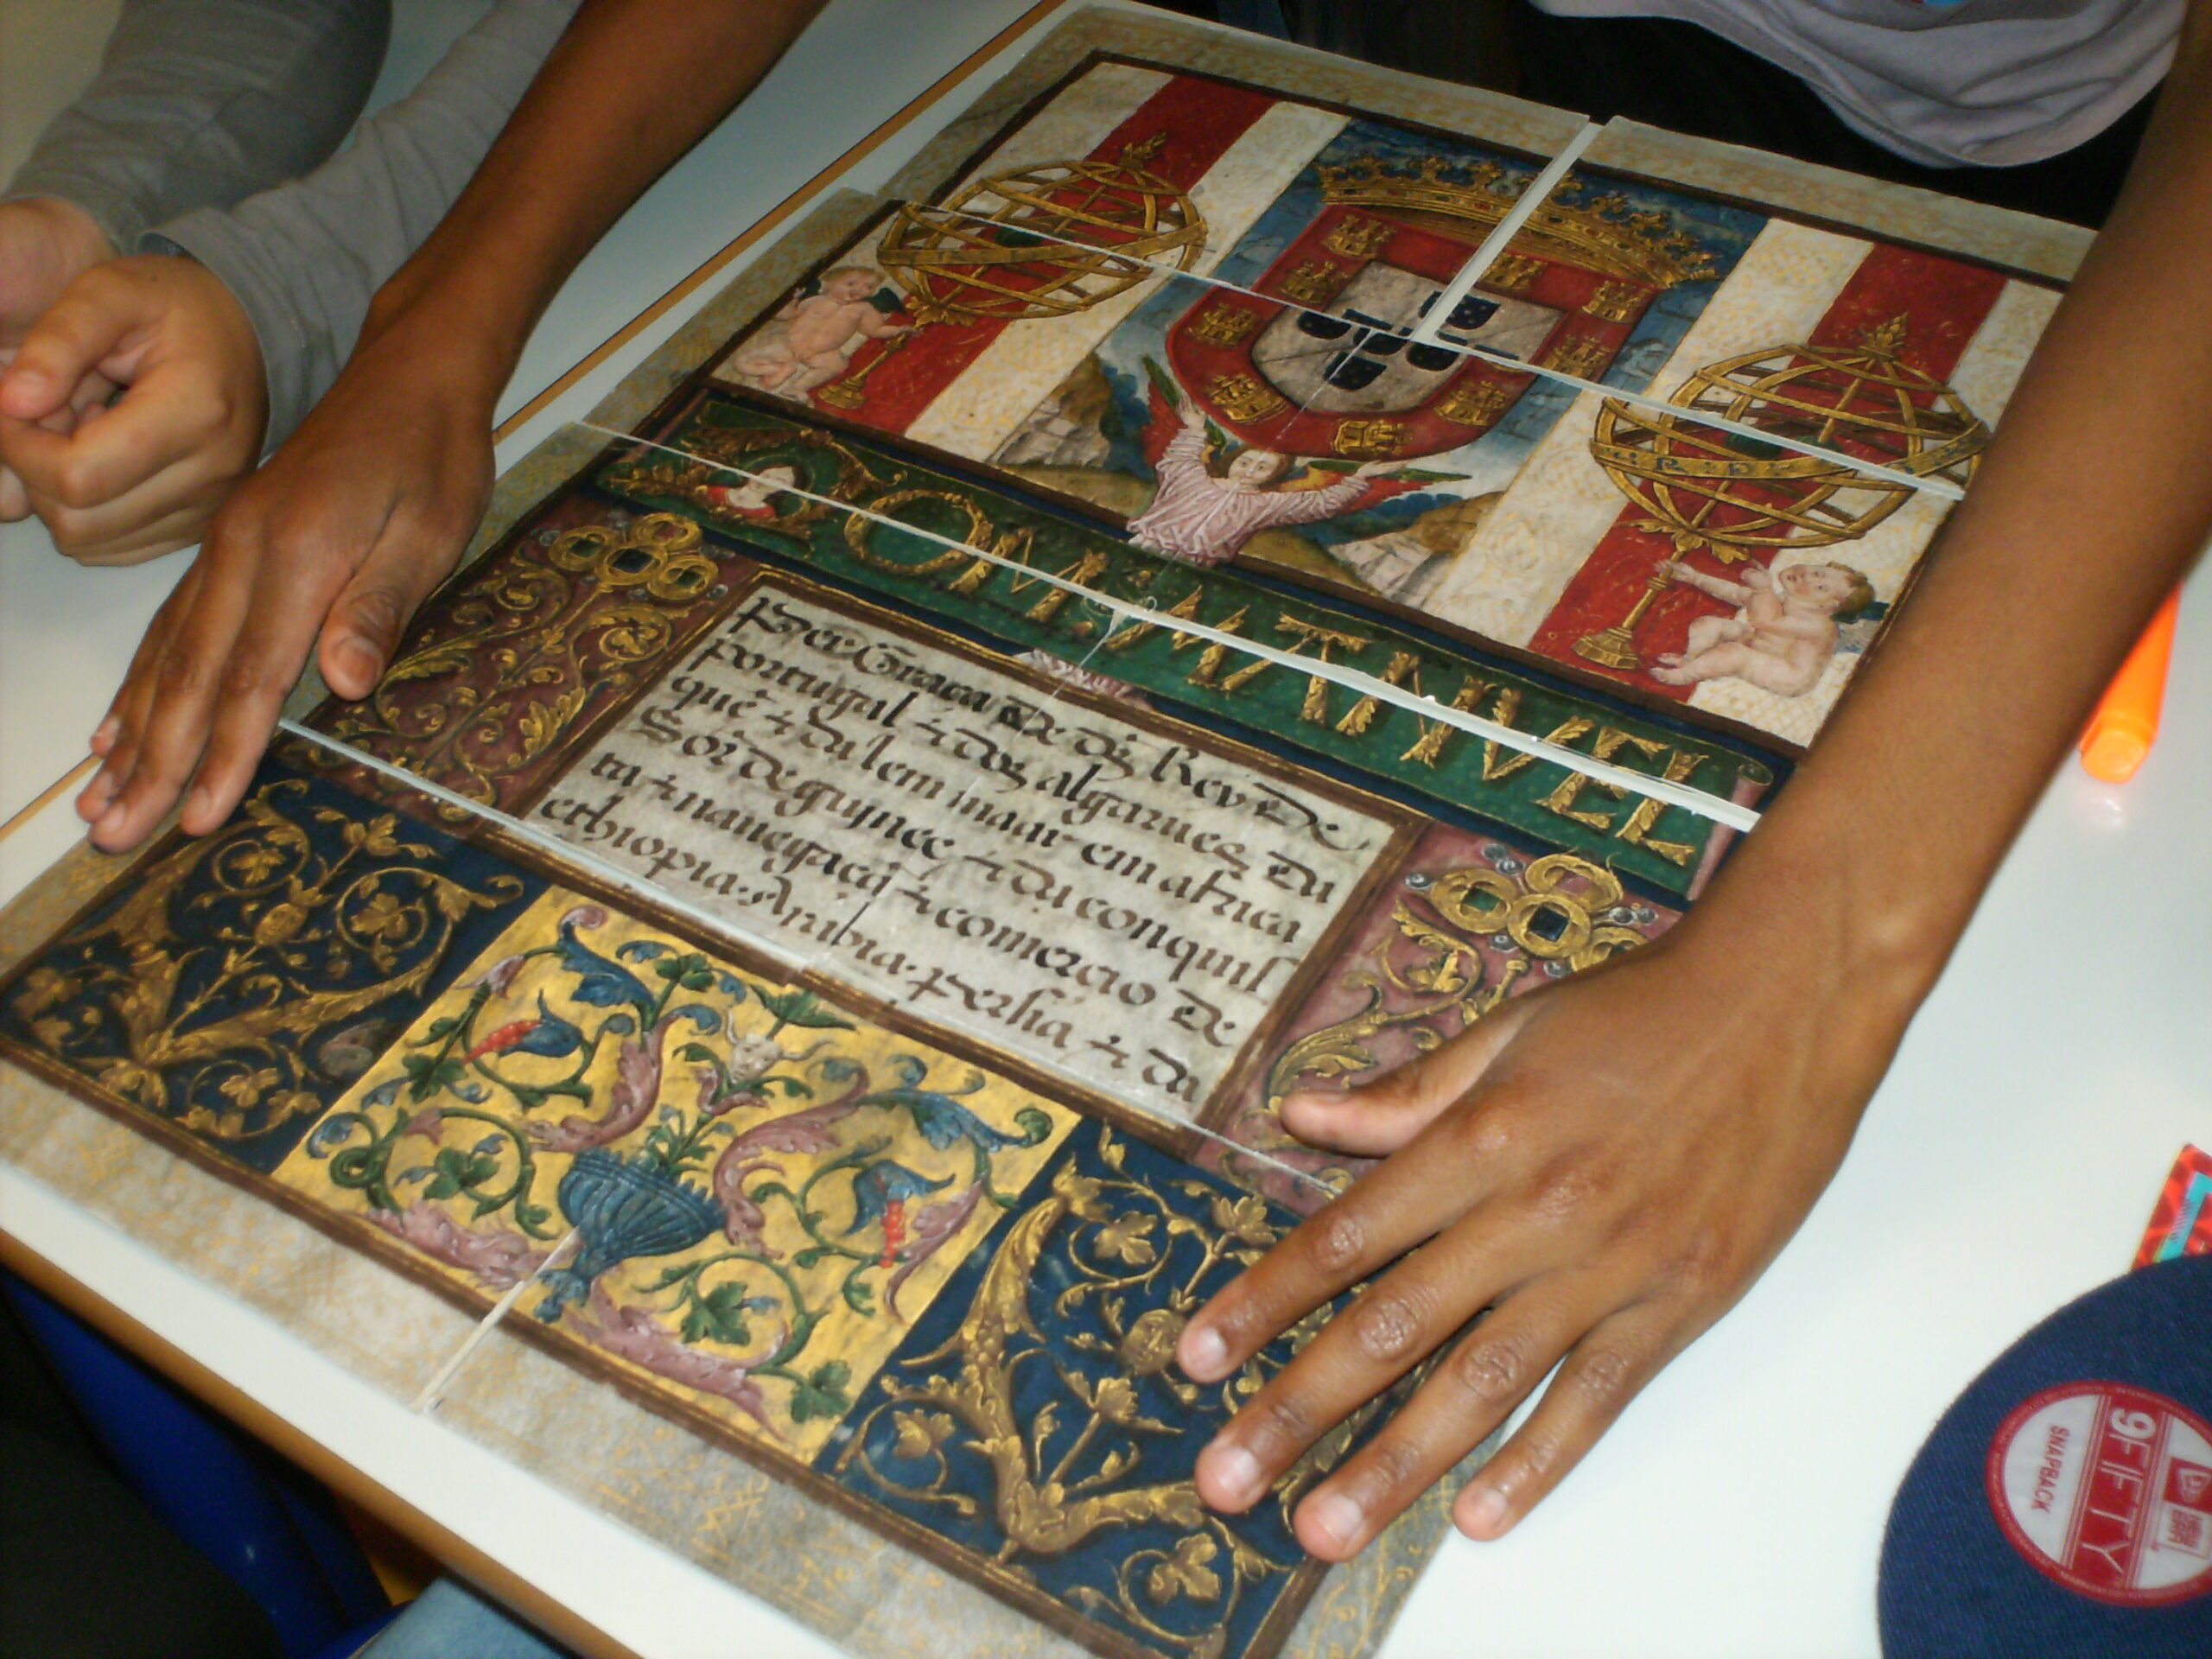 DOM MANVEL
per Graca De ds Rey De
portugal ⁊ dos algarues, da
quẽ ⁊ dalem maar em africa
Sõr De guynee ⁊ da conquis
ta ⁊ nauegacã ⁊ comercio De
ethiopia. Arabia. persia ⁊ da
9FIFTY
SNAPBACK